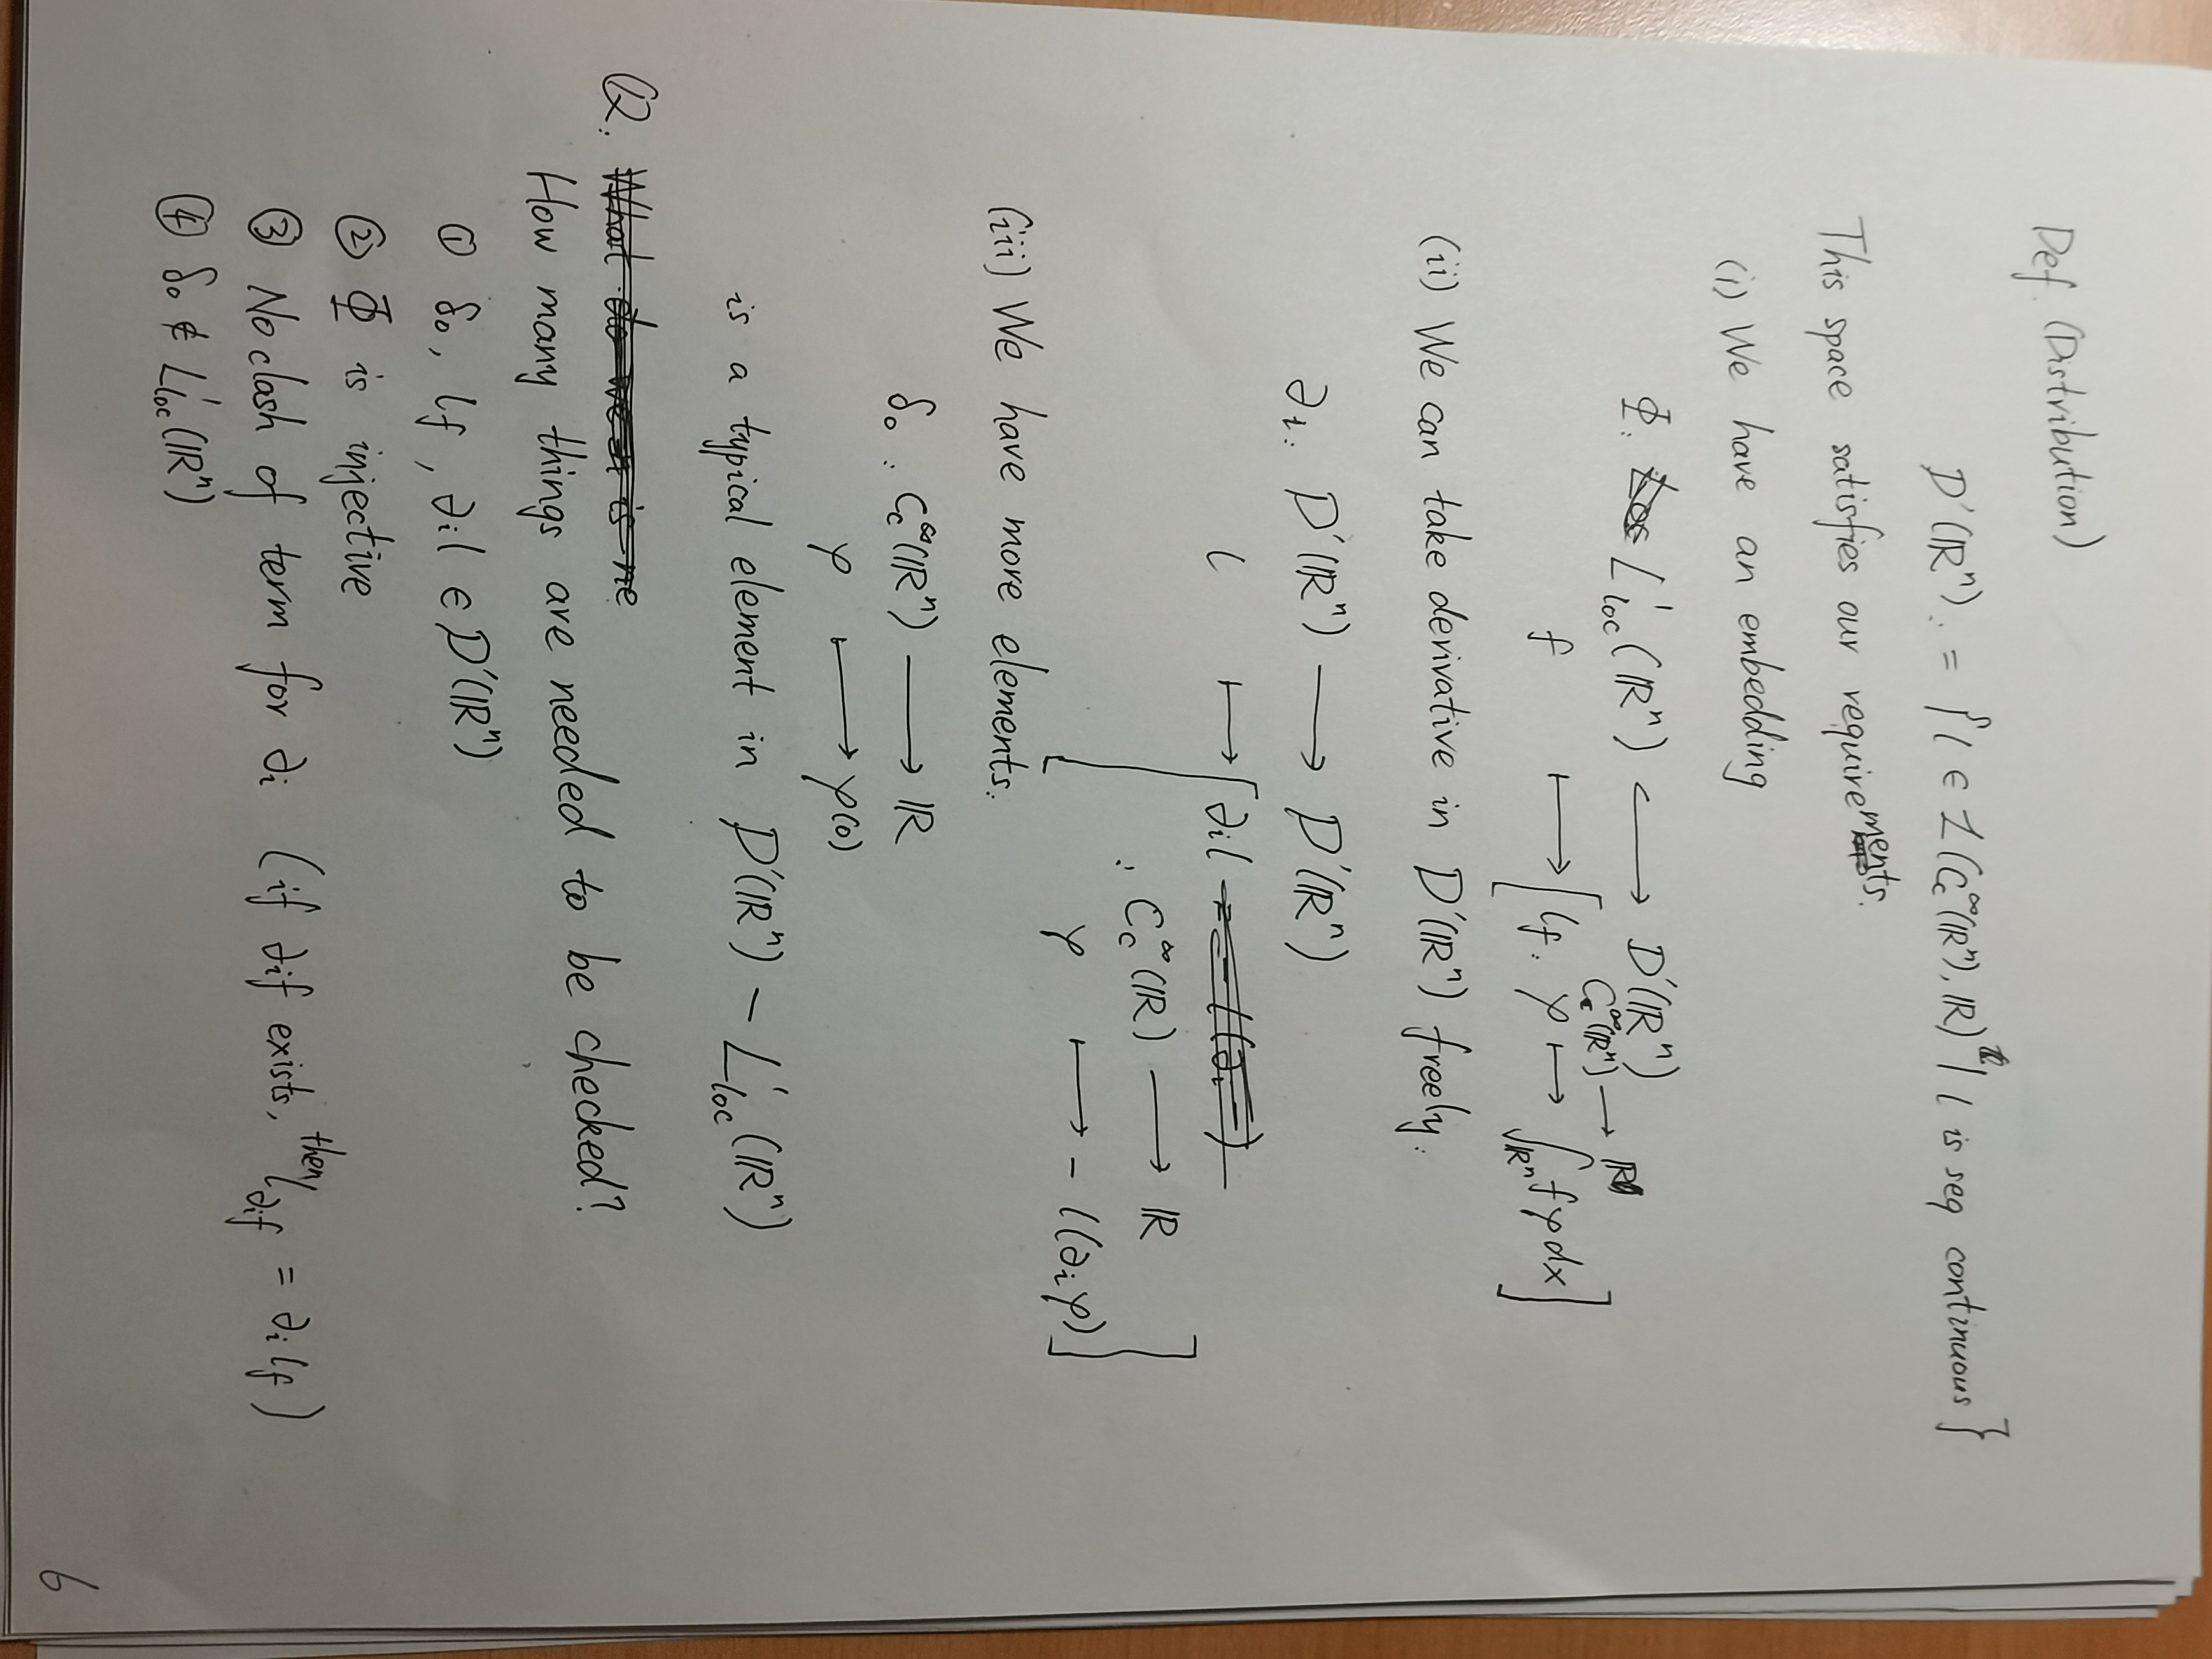 Def. (Distribution)
D'(ℝⁿ) := { l ∈ L(C_c^∞(ℝⁿ), ℝ) | l is seq continuous }
This space satisfies our requirements.
(i) We have an embedding
Φ: L¹_loc(ℝⁿ) ⟷ D'(ℝⁿ)
C_c^∞(ℝⁿ) → ℝ
f ↦ [ l_f: φ ↦ ∫_ℝⁿ fφdx ]
(ii) We can take derivative in D'(ℝⁿ) freely:
∂_i: D'(ℝⁿ) → D'(ℝⁿ)
l ↦ [ ∂_i l
: C_c^∞(ℝ) → ℝ
φ ↦ - l(∂_i φ) ]
(iii) We have more elements:
δ₀ : C_c^∞(ℝⁿ) → ℝ
φ ↦ φ(0)
is a typical element in D'(ℝⁿ) - L¹_loc(ℝⁿ)
Q: What do we is ne
How many things are needed to be checked?
① δ₀, l_f, ∂_i l ∈ D'(ℝⁿ)
② Φ is injective
③ No clash of term for ∂_i (if ∂_i f exists, then l_{∂_i f} = ∂_i l_f)
④ δ₀ ∉ L¹_loc(ℝⁿ)
6